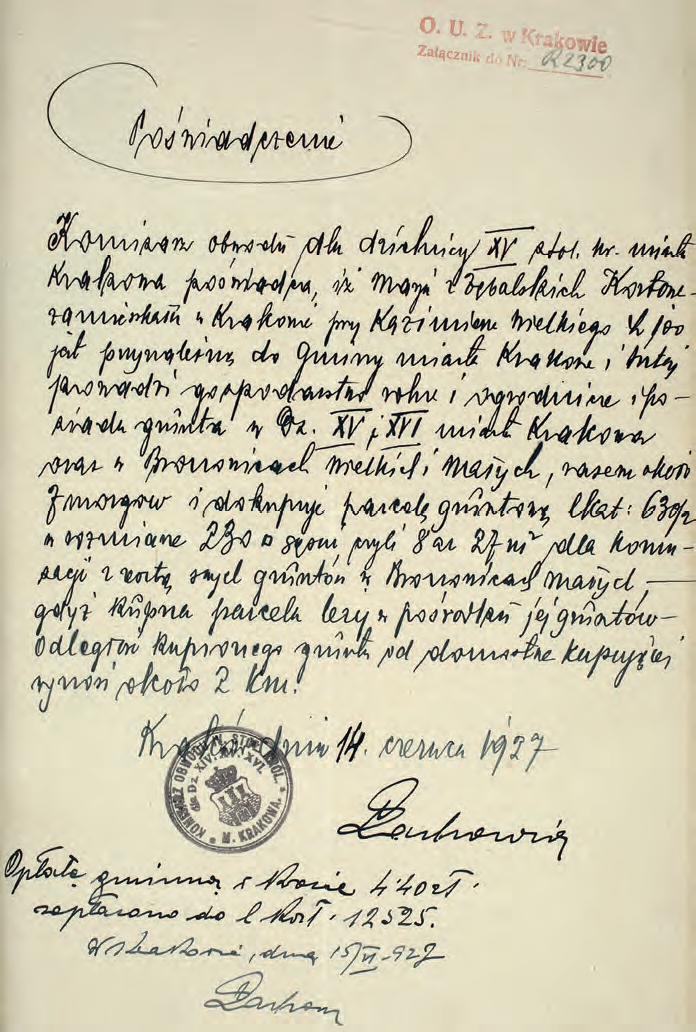 O. U. Z. w Krakowie
Załącznik do Nr. R2300
Poświadczenie
Komisarz obwodu dla dzielnicy XV stoł. kr. miasta
Krakowa poświadcza, iż Marya z Zębalskich
zamieszkała w Krakowie przy Kazimierza Wielkiego L 100
jest przynależną do Gminy miasta Krakowa i tutaj
prowadzi gospodarstwo rolne i ogrodnicze i po-
siada grunta w Dz. XV i XVI miasta Krakowa
oraz w Bronowicach Wielkich i Małych, razem około
7 morgów i dokupuje parcelę gruntową lkat: 630/2
w rozmiarze 230 □ sążni, czyli 8 ar 27 m² dla komu-
sacji z resztą swych gruntów w Bronowicach małych, —
gdyż kupna parcela leży w pośrodku jej gruntów —
Odległość kupionego gruntu od domostwa kupującej
wynosi około 2 km.
Kraków, dnia 14. czerwca 1927
KOMISARZ OBWODOWY STOŁ. KRÓL. M. KRAKOWA.
dla Dz. XIV. XV. XVI.
Opłatę gminną w kwocie 4.40 zł.
zapłacono do l. 12525.
W Krakowie, dnia 15/VI 927